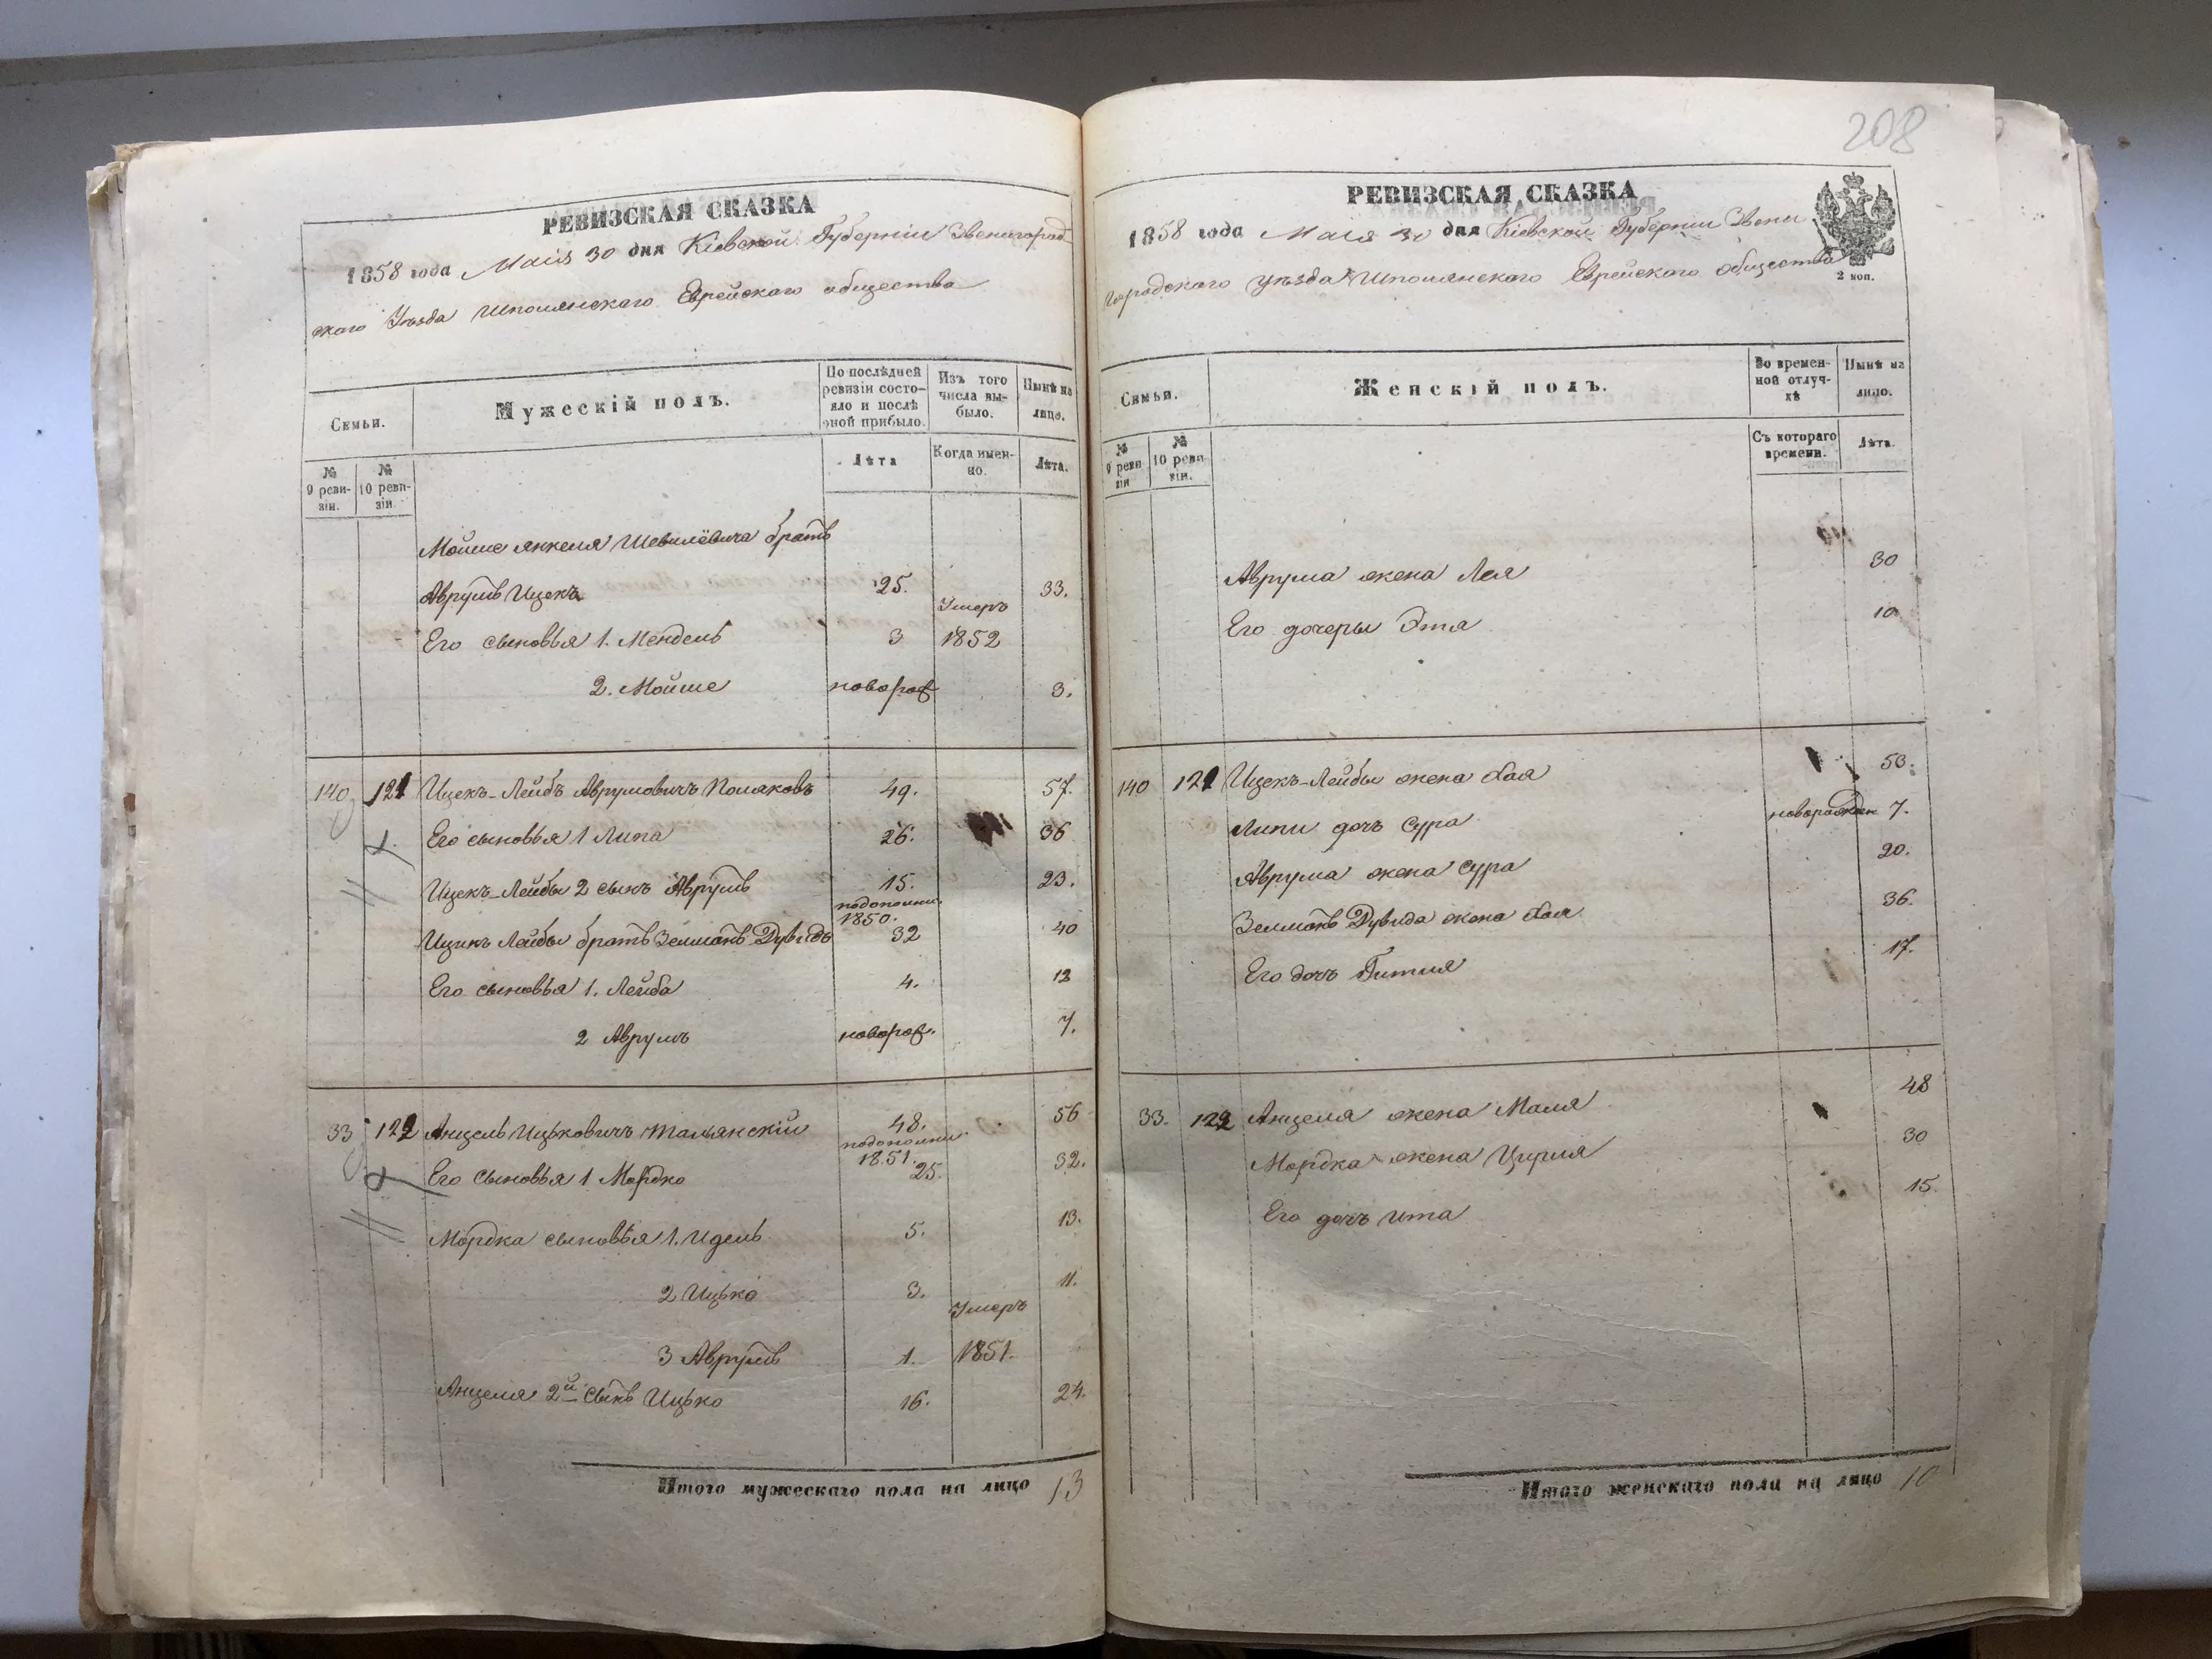 208
РЕВИЗСКАЯ СКАЗКА
1858 года Маія 30 дня Кіевской Губерніи Звенигород-
скаго Уѣзда Шполянскаго Еврейскаго общества
Семьи.
Мужескій полъ.
По послѣдней ревизіи состояло и послѣ оной прибыло.
Изъ того числа выбыло.
Нынѣ на лицо.
№ 9 ревизіи.
№ 10 ревизіи.
Лѣта
Когда именно.
Лѣта.
Мойше Янкеля братъ
Аврумъ Ицекъ 25. 33.
Его сыновья 1. Мендель 3 Умеръ 1852
2. Мойше новорож 3.
140 121 Ицекъ-Лейбъ Аврумовичъ Поляковъ 49. 57.
Его сыновья 1 Липа 26. 36
Ицекъ-Лейбы 2 сынъ Аврумъ 15. 23.
Ицикъ Лейбы братъ Зельманъ Дувидъ 1850. 32 40
Его сыновья 1. Лейба 4. 12
2 Аврумъ новорож. 7.
33 122 Анцель Ицковичъ Тальянскій 48. 56
Его сыновья 1 Мордко 1851. 25. 32.
Мордка сыновья 1. Идель 5. 13.
2 Ицько 3. 11.
3 Аврумъ 1. Умеръ 1851.
Анцеля 2й сынъ Ицько 16. 24.
Итого мужескаго пола на лицо 13
РЕВИЗСКАЯ СКАЗКА
1858 года Маія 30 дня Кіевской Губерніи Звени
городскаго уѣзда Шполянскаго Еврейскаго общества
2 коп.
Семьи.
Женскій полъ.
Во временной отлучкѣ
Нынѣ на лицо.
№ 9 ревизіи
№ 10 ревизіи.
Съ котораго времени.
Лѣта.
Аврума жена Лея 30
Его дочеры Этя 10
140 121 Ицекъ-Лейбы жена Хая 53.
Липи дочъ Сура новорожден 7.
Аврума жена Сура 20.
Зельманъ Дувида жена Хая 36.
Его дочъ Гитля 17.
33. 122 Анцеля жена Маля 48
Мордка жена Цирля 30
Его дочъ Ита 15
Итого женскаго пола на лицо 10